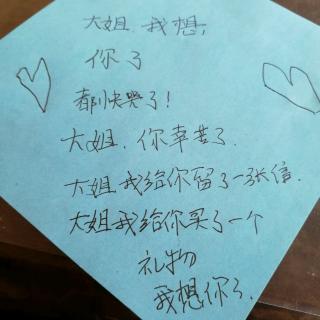 大姐,我想,
你了
都快哭了!
大姐,你幸苦了.
大姐我给你留了一张信.
大姐我给你买了一个
礼物
我想你了.